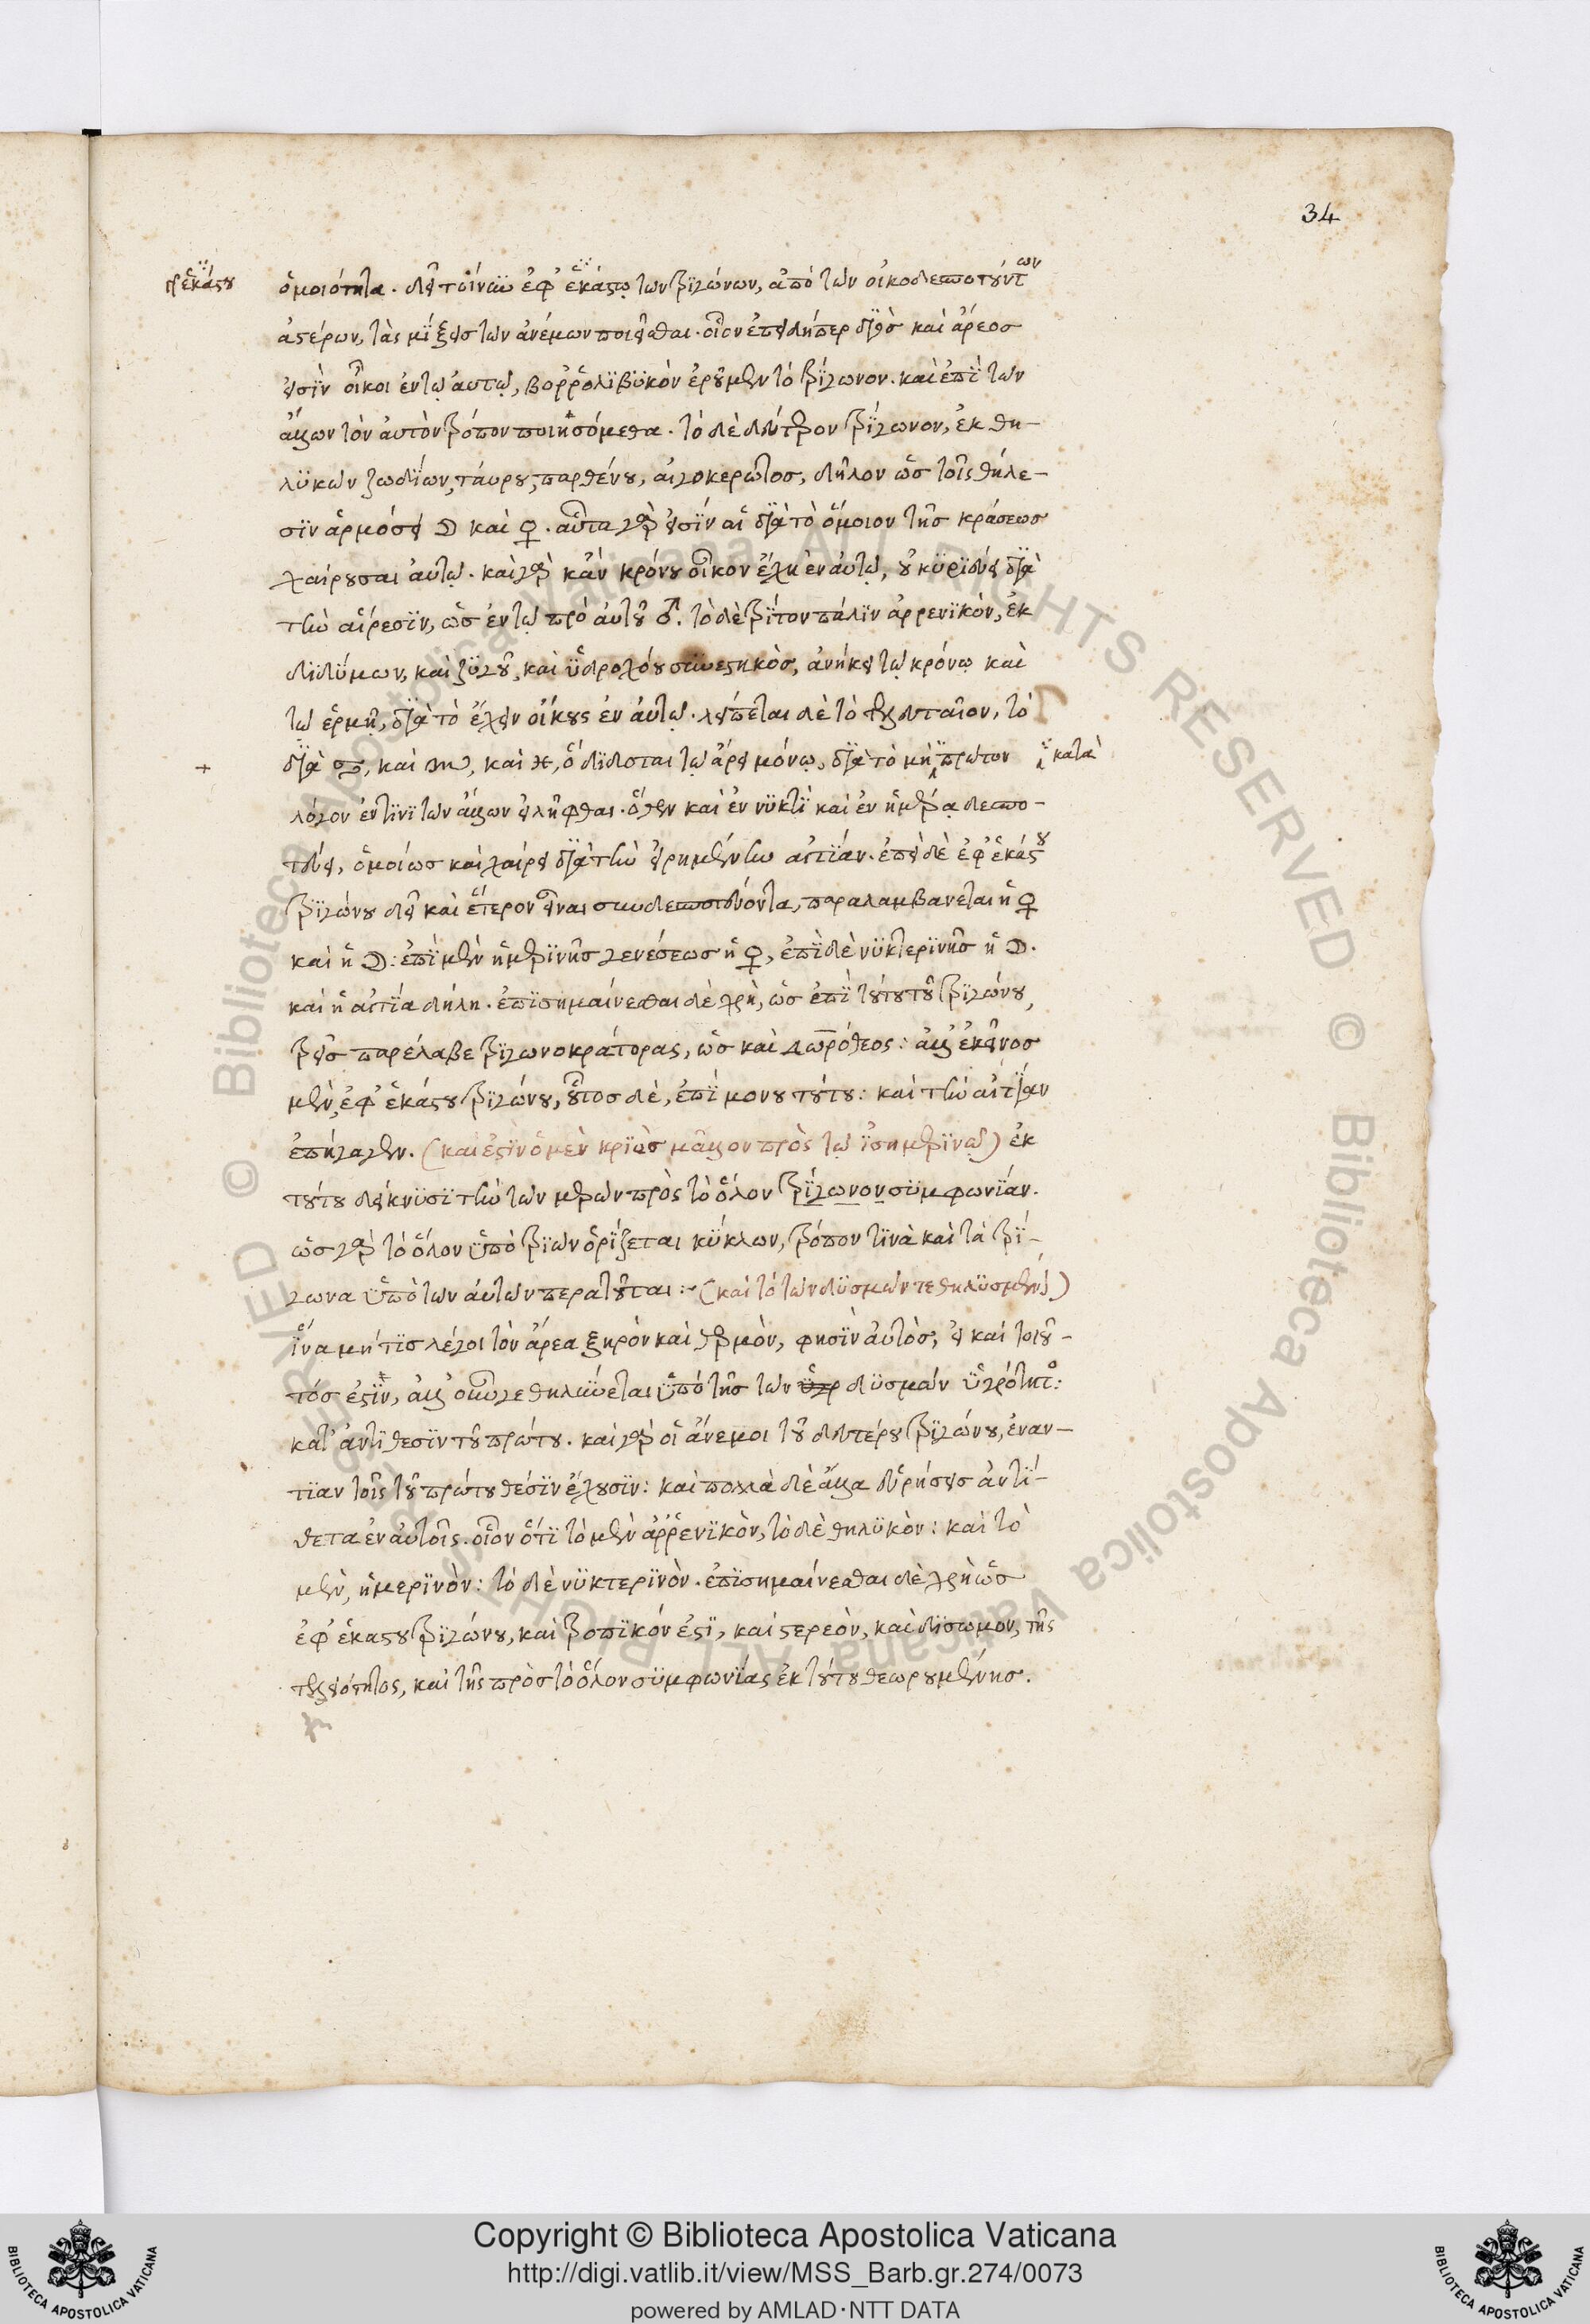 34
ἢ ἑκάστου
ὁμοιότητα. δεῖ τοίνυν ἐφ᾽ ἑκάστῳ τῶν τριγώνων, ἀπὸ τῶν οἰκοδεσποτούντων
ἀστέρων, τὰς μίξεις τῶν ἀνέμων ποιεῖσθαι. οἷον ἐπειδήπερ διὸς καὶ ἄρεος
εἰσὶν οἶκοι ἐν τῷ αὐτῷ, βορρολιβυκὸν ἐροῦμεν τὸ τρίγωνον. καὶ ἐπὶ τῶν
ἄλλων τὸν αὐτὸν τρόπον ποιησόμεθα. τὸ δὲ δεύτερον τρίγωνον, ἐκ θη-
λυκῶν ζωδίων, ταύρου, παρθένου, αἰγοκερῶτος, δῆλον ὡς τοῖς θήλε-
σιν ἁρμόσει ☽ καὶ ♀. αὗται γάρ εἰσιν αἱ διὰ τὸ ὅμοιον τῆς κράσεως
χαίρουσαι αὐτῷ. καὶ γὰρ κἂν κρόνου οἶκον ἔχῃ ἐν αὐτῷ, οὐ κυριεύει διὰ
τὴν αἵρεσιν, ὡς ἐν τῷ πρὸ αὐτοῦ ♂. τὸ δὲ τρίτον πάλιν ἀρρενικὸν, ἐκ
διδύμων, καὶ ζυγοῦ, καὶ ὑδροχόου συνεστηκὸς, ἀνήκει τῷ κρόνῳ καὶ
τῷ ἑρμῇ, διὰ τὸ ἔχειν οἴκους ἐν αὐτῷ. λείπεται δὲ τὸ τελευταῖον, τὸ
διὰ ♋, καὶ ♏, καὶ ♓, ὃ δίδοται τῷ ἄρει μόνῳ, διὰ τὸ μὴ πρῶτον
ἢ κατὰ
+
λόγον ἐν τινὶ τῶν ἄλλων εἰλῆφθαι. ὅθεν καὶ ἐν νυκτὶ καὶ ἐν ἡμέρᾳ δεσπο-
τεύει, ὁμοίως καὶ χαίρει διὰ τὴν εἰρημένην αἰτίαν. ἐπεὶ δὲ ἐφ᾽ ἑκάστου
τριγώνου δεῖ καὶ ἕτερον εἶναι συνδεσποτεύοντα, παραλαμβάνεται ἡ ♀
καὶ ἡ ☽: ἐπὶ μὲν ἡμερινῆς γενέσεως ἡ ♀, ἐπὶ δὲ νυκτερινῆς ἡ ☽.
καὶ ἡ αἰτία δήλη. ἐπισημαίνεσθαι δὲ χρὴ, ὡς ἐπὶ τούτου τοῦ τριγώνου,
τρεῖς παρέλαβε τριγωνοκράτορας, ὡς καὶ Δωρόθεος: ἀλλ᾽ ἐκεῖνος
μὲν, ἐφ᾽ ἑκάστου τριγώνου, οὗτος δὲ, ἐπὶ μόνου τούτου: καὶ τὴν αἰτίαν
ἐπήγαγεν. (καὶ ἐστὶν ὁ μὲν κριὸς μᾶλλον πρὸς τῷ ἰσημερινῷ) ἐκ
τούτου δείκνυσι τὴν τῶν μερῶν πρὸς τὸ ὅλον τρίγωνον συμφωνίαν.
ὡς γὰρ τὸ ὅλον ὑπὸ τριῶν ὁρίζεται κύκλων, τρόπον τινὰ καὶ τὰ τρί-
γωνα ὑπὸ τῶν αὐτῶν περατοῦται:- (καὶ τὸ τῶν δυσμῶν τεθηλυσμένον)
ἵνα μή τις λέγοι τὸν ἄρεα ξηρὸν καὶ θερμὸν, φησὶν αὐτὸς, εἰ καὶ τοιοῦ-
τός ἐστιν, ἀλλ᾽ οὖν γε θηλύνεται ὑπὸ τῆς τῶν ὑγρ δυσμῶν ὑγρότητος:
κατ᾽ ἀντίθεσιν τοῦ πρώτου. καὶ γὰρ οἱ ἄνεμοι τοῦ δευτέρου τριγώνου, ἐναν-
τίαν τοῖς τοῦ πρώτου θέσιν ἔχουσιν: καὶ πολλὰ δὲ ἄλλα εὑρήσεις ἀντί-
θετα ἐν αὐτοῖς. οἷον ὅτι τὸ μὲν ἀρρενικὸν, τὸ δὲ θηλυκὸν: καὶ τὸ
μὲν, ἡμερινὸν: τὸ δὲ νυκτερινὸν. ἐπισημαίνεσθαι δὲ χρὴ ὡς
ἐφ᾽ ἑκάστου τριγώνου, καὶ τροπικόν ἐστι, καὶ στερεὸν, καὶ δίσωμον, τῆς
τελειότητος, καὶ τῆς πρὸς τὸ ὅλον συμφωνίας ἐκ τούτου θεωρουμένης.
Copyright © Biblioteca Apostolica Vaticana
http://digi.vatlib.it/view/MSS_Barb.gr.274/0073
powered by AMLAD·NTT DATA